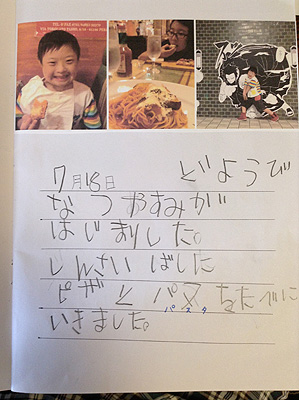 7月18日 どようび
なつやすみが
はじまりした。
しんさいばしに
ピザとパスタをたべに
パスタ
いきました。